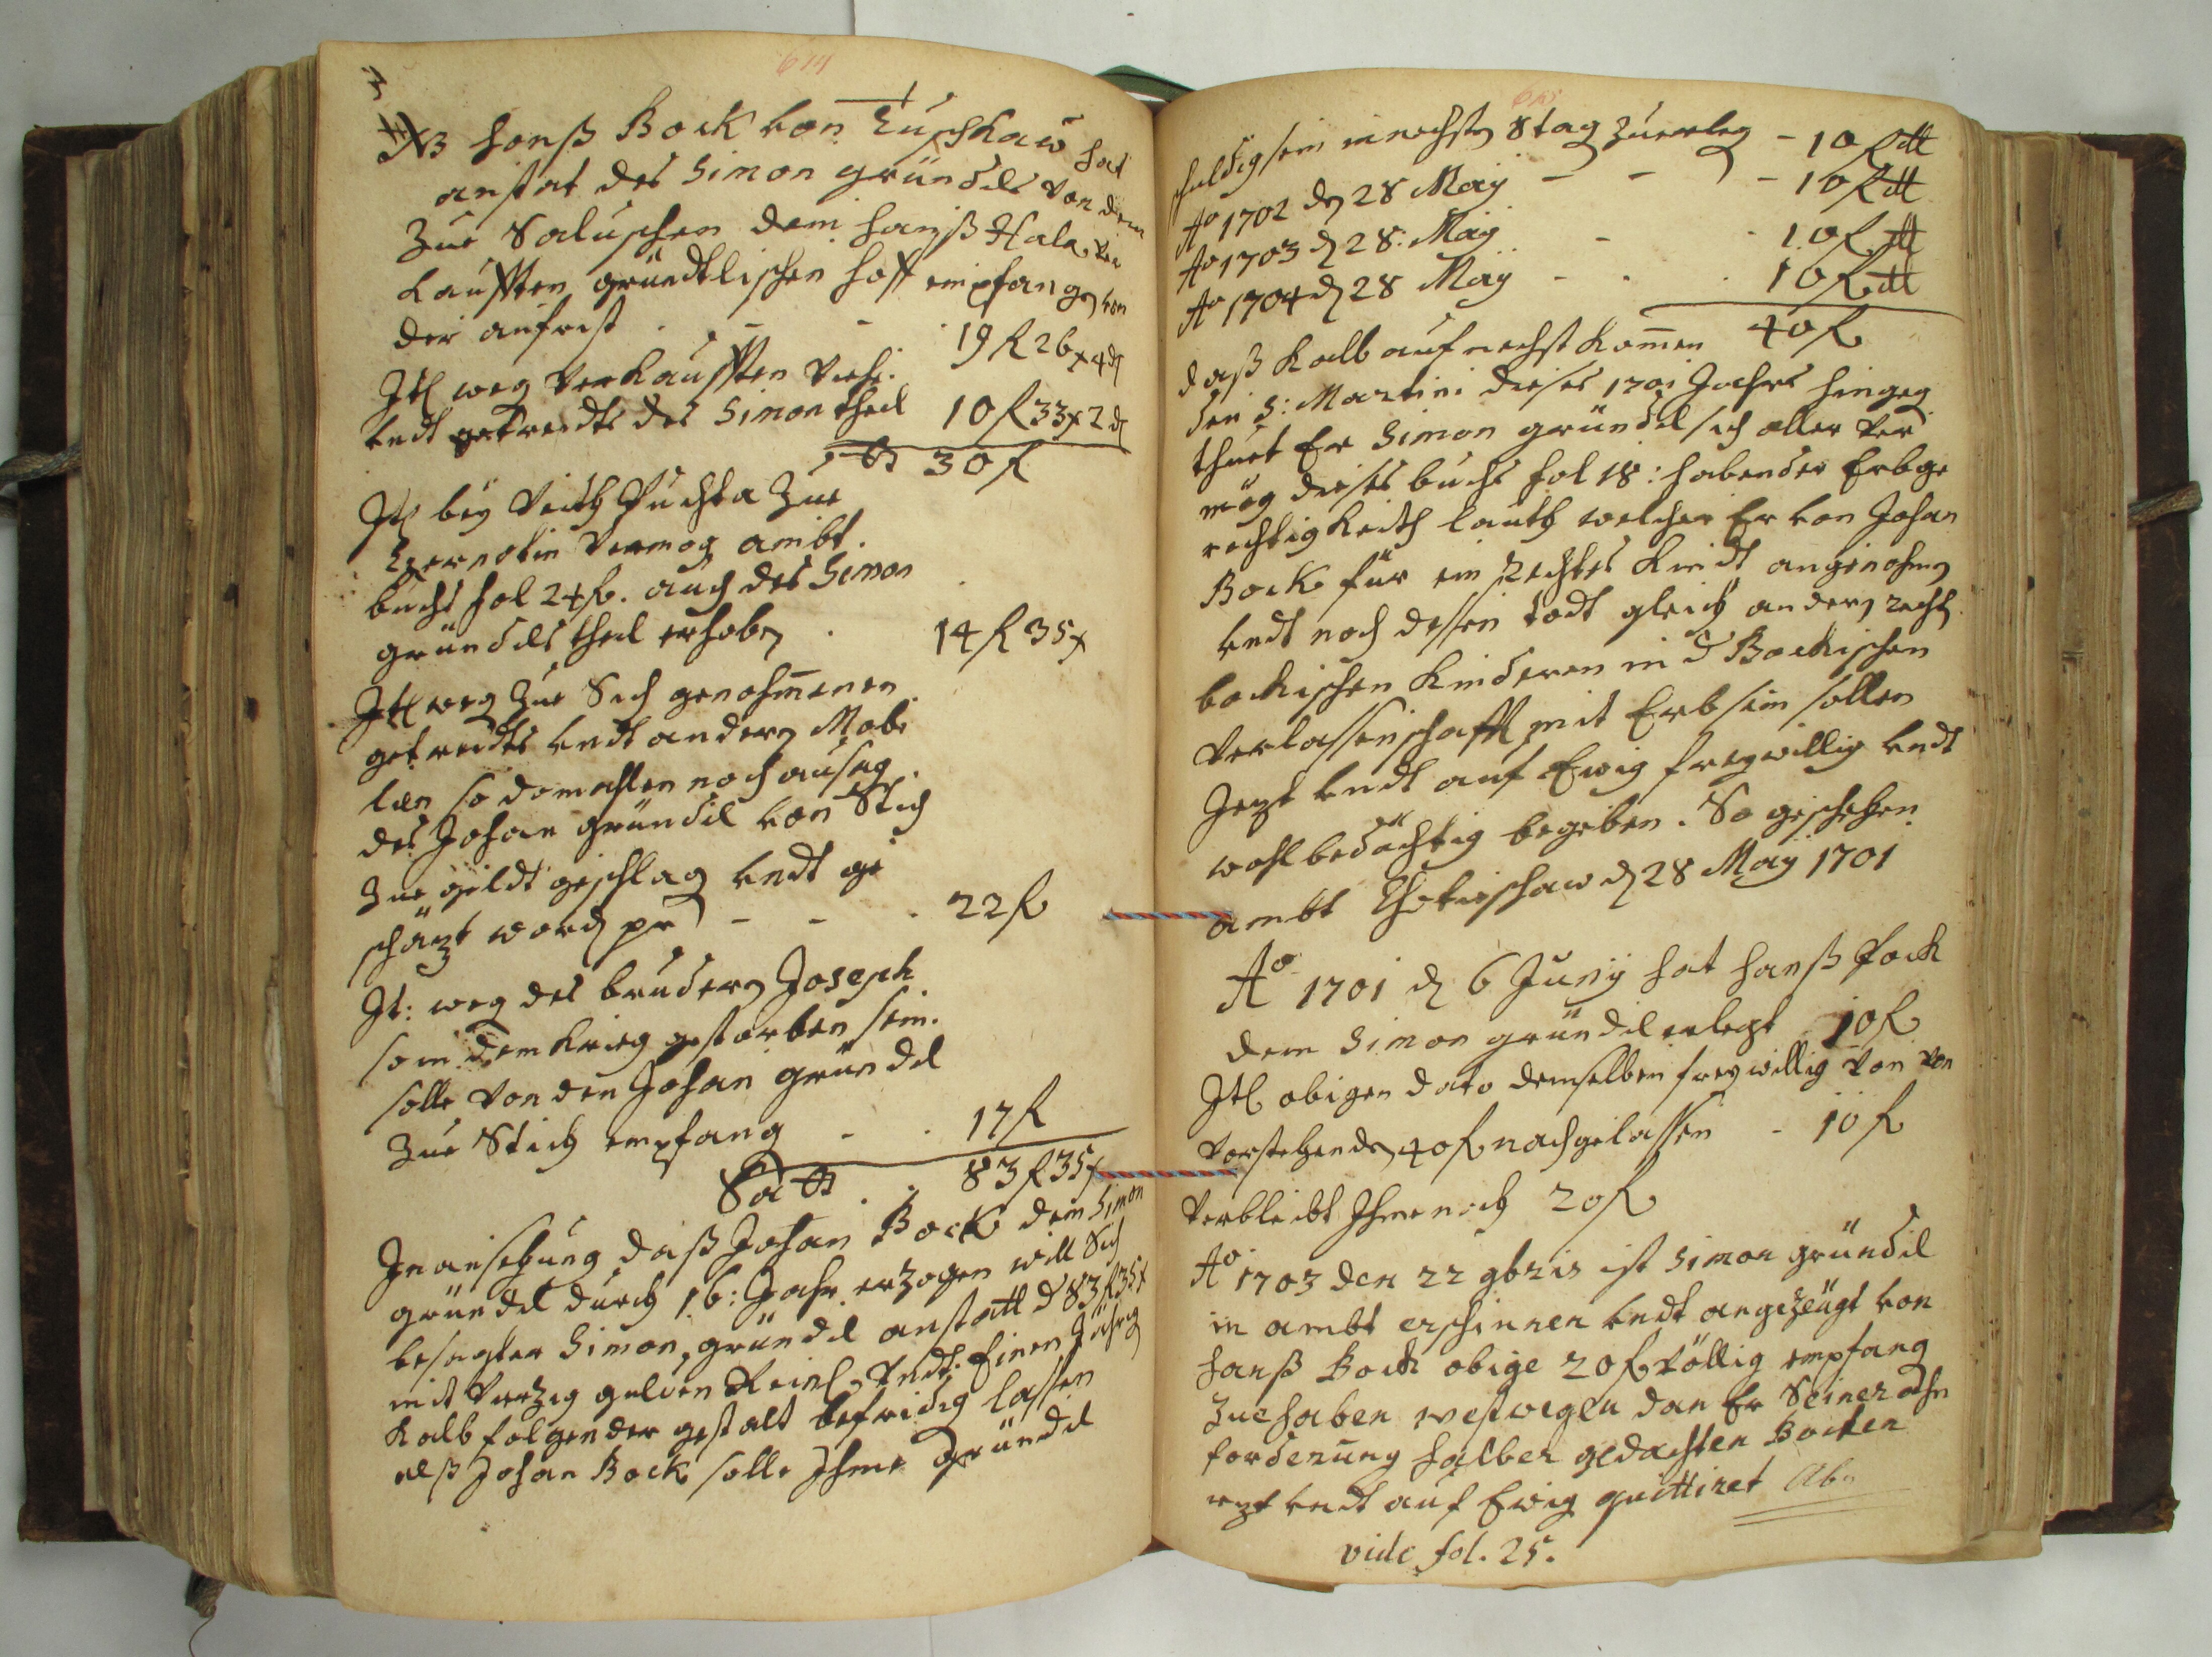 614
NB Hanß Bock von Tuschkaw hat
anstat des Simon gründels von dem
Zue Saluschen dem Hanß ver
kaufften gründlischen hoff empfangen von
der aufrist - 19 fl 26 x 4 d
Itl weg verkaufften Viehe
undt getreidts des Simon theil 10 fl 33 x 2 d
30 fl
Itl bey Veith Puchta Zue
Czernotin Vermög ambt
buchs fol 24 auch des Simon
gründls theil erhoben . 14 fl 35 x
Itl weg Zue Sich genohmenen
getreidts undt andern Mobi
lien so domahlen noch
des Johan gründel von Stich
Zue geldt geschlag undt ge
schäzt word pr - - . 22 fl
It: weg des bruders Joseph
so in dem Krieg gestorben sein
solle von den Johan gründel
Zue Stich empfang - . 17 fl
Sa . . 83 fl 35 x
In ansehung daß Johan Bock dem Simon
gründel durch 16: Jahr erzogen will Sich
besagter Simon gründel anstatt d 83 fl 35 x
mit Vierzig gulden Reinl undt Einen Jährig
Kalb folgender gestalt befridig lassen
alß Johan Bock solle Ihme gründel
schuldig sein in nechsten 8 tag Zuerleg - 10 fl
Ao 1702 den 28 May - - - 10 fl
Ao 1703 d 28: May - . 10 fl
Ao 1704 d 28 May - . . 10 fl
40 fl
daß Kalb auf nechst komen
den S: Martini dieses 1701 Jahrs hingeg
thuet Er Simon gründel sich aller ver
mög dieses buchs fol 18: habender Erbge
rechtigkeith lauth welcher Er von Johan
Bock für ein rechtes Kindt angenohmen
undt noch dessen todt gleich andern recht
bockischen Kinderen in d Bockischen
Verlassenschafft mit Erb sein sollen
Jezt undt auf Ewig freywillig undt
wohlbedächtig begeben. So geschehen
ambt Chotieschaw d 28 May 1701
Ao 1701 d 6 Juny hat Hanß Pock
dem Simon gründel erlegt 10 fl
Itl obigen dato demselben freywillig von
vorstehenden 40 fl nachgelassen - 10 fl
Verbleibt Ihme noch 20 fl
Ao 1703 den 22 9bris ist Simon gründel
in ambt erschinnen undt angezeügt von
Hanß Bock obige 20 fl völlig empfang
Zue haben weswegen dan Er Seiner
forderung halber gedachten Bocken
jezt undt auf Ewig quittiret
vide fol. 25.